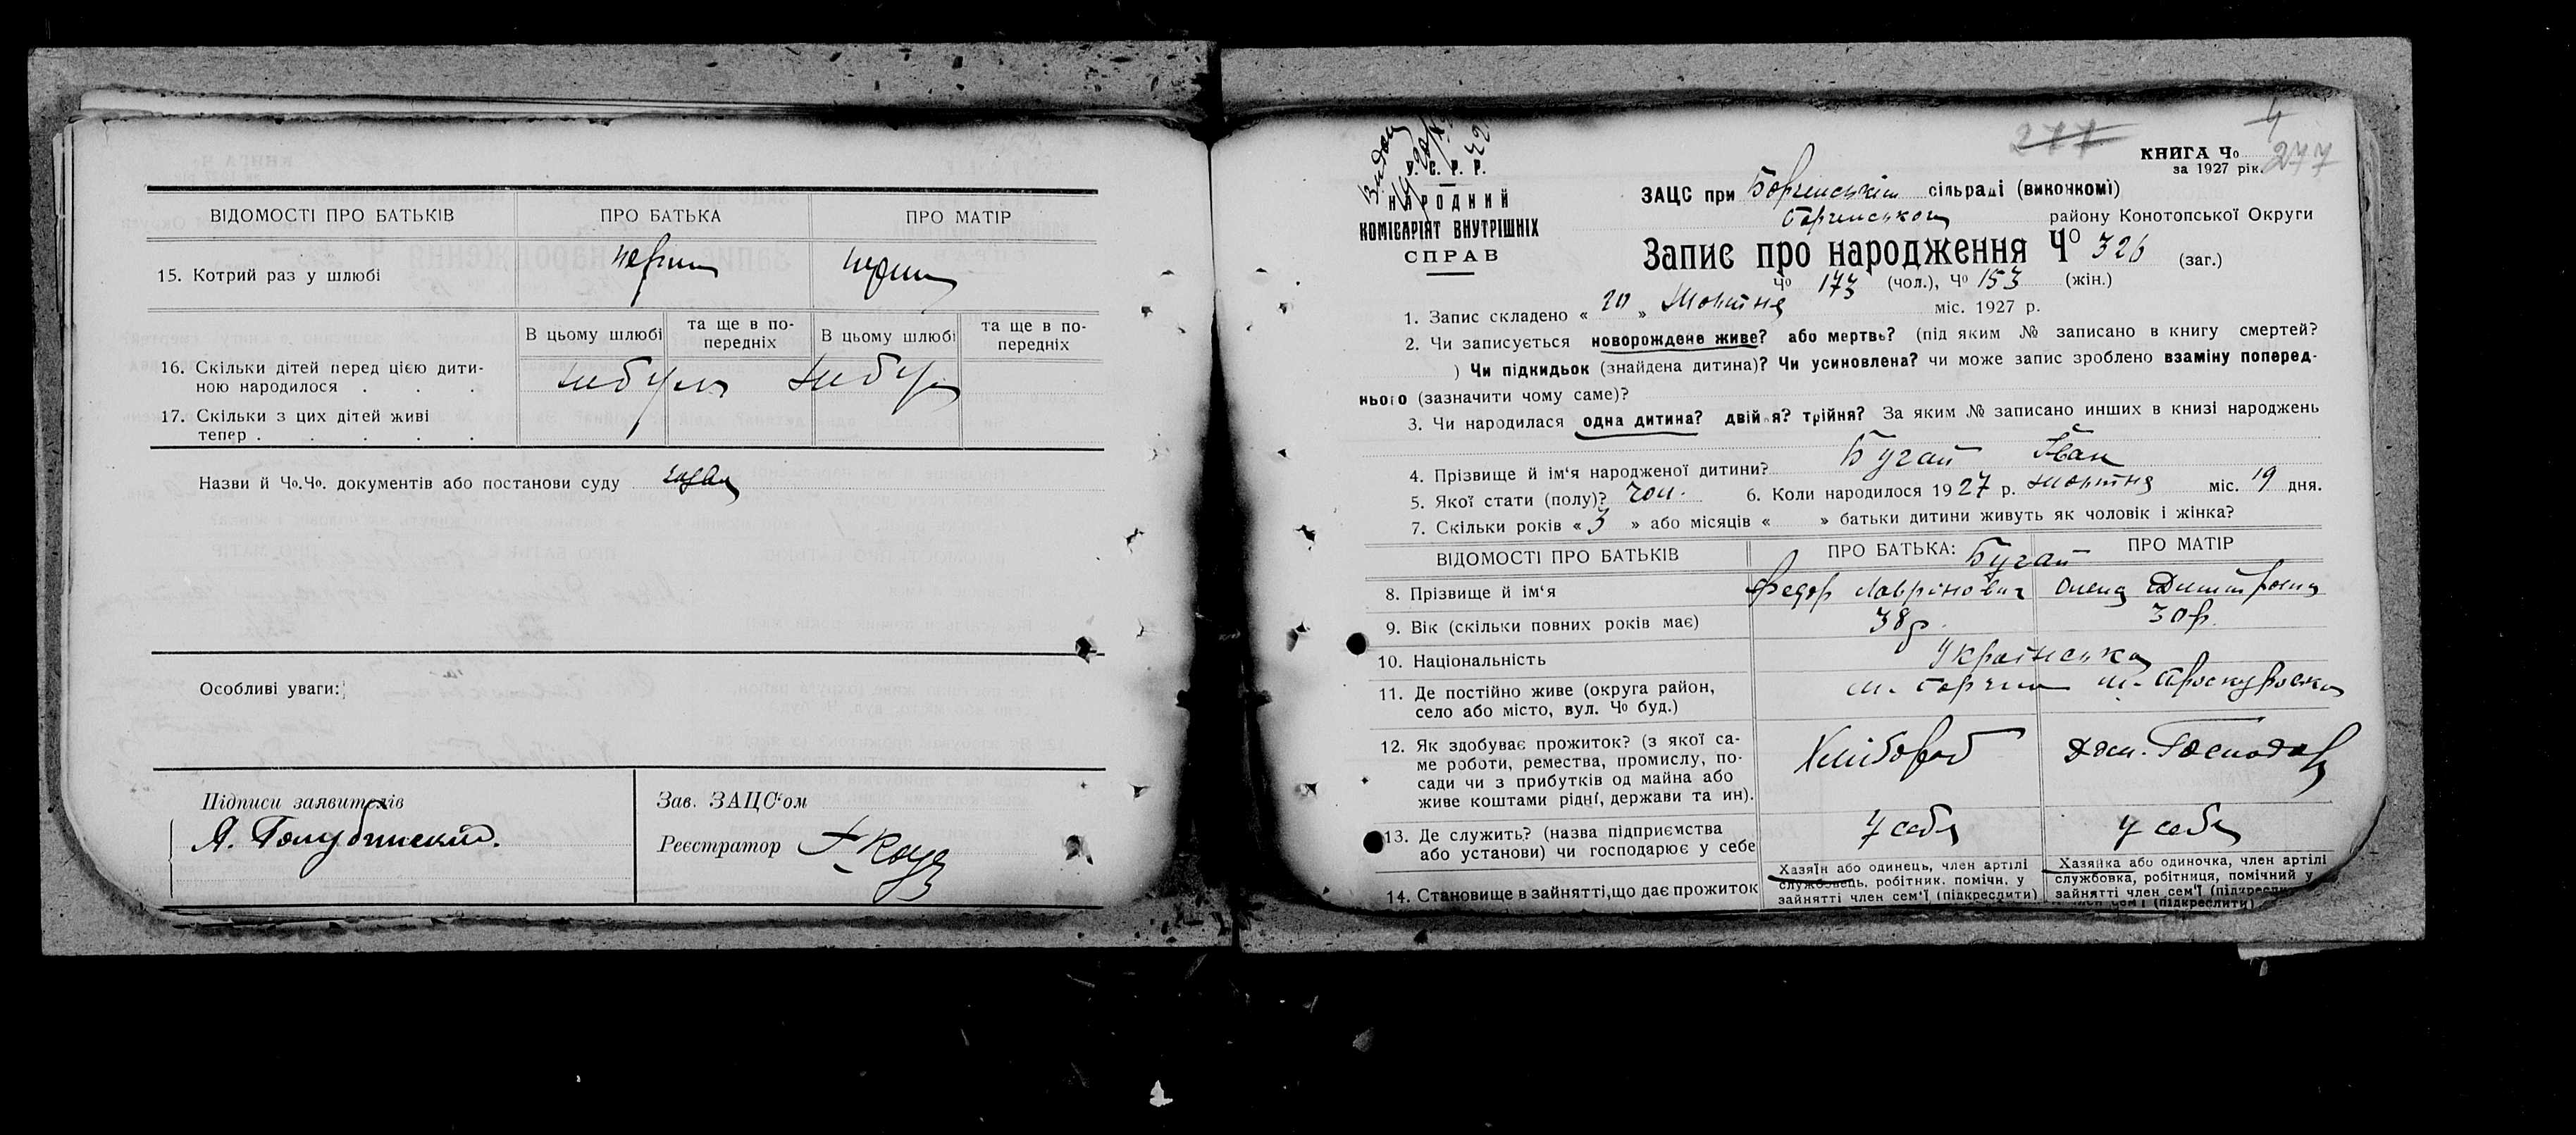 ВІДОМОСТІ ПРО БАТЬКІВ ПРО БАТЬКА ПРО МАТІР
15. Котрий раз у шлюбі
В цьому шлюбі та ще в по-передніх В цьому шлюбі та ще в по-передніх
16. Скільки дітей перед цією дити-
ною народилося . . .
17. Скільки з цих дітей живі
тепер . . . . .
Назви й Чо.Чо. документів або постанови суду
Особливі уваги:
Підписи заявителів
Я. Голубинский.
Зав. ЗАЦС'ом
Реєстратор
277
4
КНИГА Чо 277
за 1927 рік.
У. С. Р. Р.
НАРОДНИЙ
КОМІСАРІЯТ ВНУТРІШНІХ
СПРАВ
ЗАЦС при Борзенській сільраді (виконкомі)
Борзенського району Конотопської Округи
Запис про народження Чо 326 (заг.)
Чо 173 (чол.), Чо 153 (жін.)
1. Запис складено « 20 » Жовтня міс. 1927 р.
2. Чи записується новорождене живе? або мертве? (під яким № записано в книгу смертей?
) Чи підкидьок (знайдена дитина)? Чи усиновлена? чи може запис зроблено взаміну поперед-
нього (зазначити чому саме)?
3. Чи народилася одна дитина? двійня? трійня? За яким № записано инших в книзі народжень
4. Прізвище й ім'я народженої дитини? Бугай Іван
5. Якої стати (полу)? чол. 6. Коли народилося 1927 р. жовтня міс. 19 дня.
7. Скільки років « 3 » або місяців « » батьки дитини живуть як чоловік і жінка?
ВІДОМОСТІ ПРО БАТЬКІВ ПРО БАТЬКА: Бугай ПРО МАТІР
8. Прізвище й ім'я Федор Лаврінович Олена Дмитровна
9. Вік (скільки повних років має) 38 р. 30 р.
10. Національність Українська
11. Де постійно живе (округа район, м. Борзна
село або місто, вул. Чо буд.)
12. Як здобуває прожиток? (з якої са- Хлібороб Дом. Господар
ме роботи, ремества, промислу, по-
сади чи з прибутків од майна або
живе коштами рідні, держави та ин).
13. Де служить? (назва підприємства у себе у себе
або установи) чи господарює у себе
14. Становище в зайнятті, що дає прожиток
Хазяїн або одинець, член артілі
службовець, робітник, помічн. у
зайнятті член сем'ї (підкреслити)
Хазяйка або одиночка, член артілі
службовка, робітниця, помічний у
зайнятті член сем'ї (підкреслити)